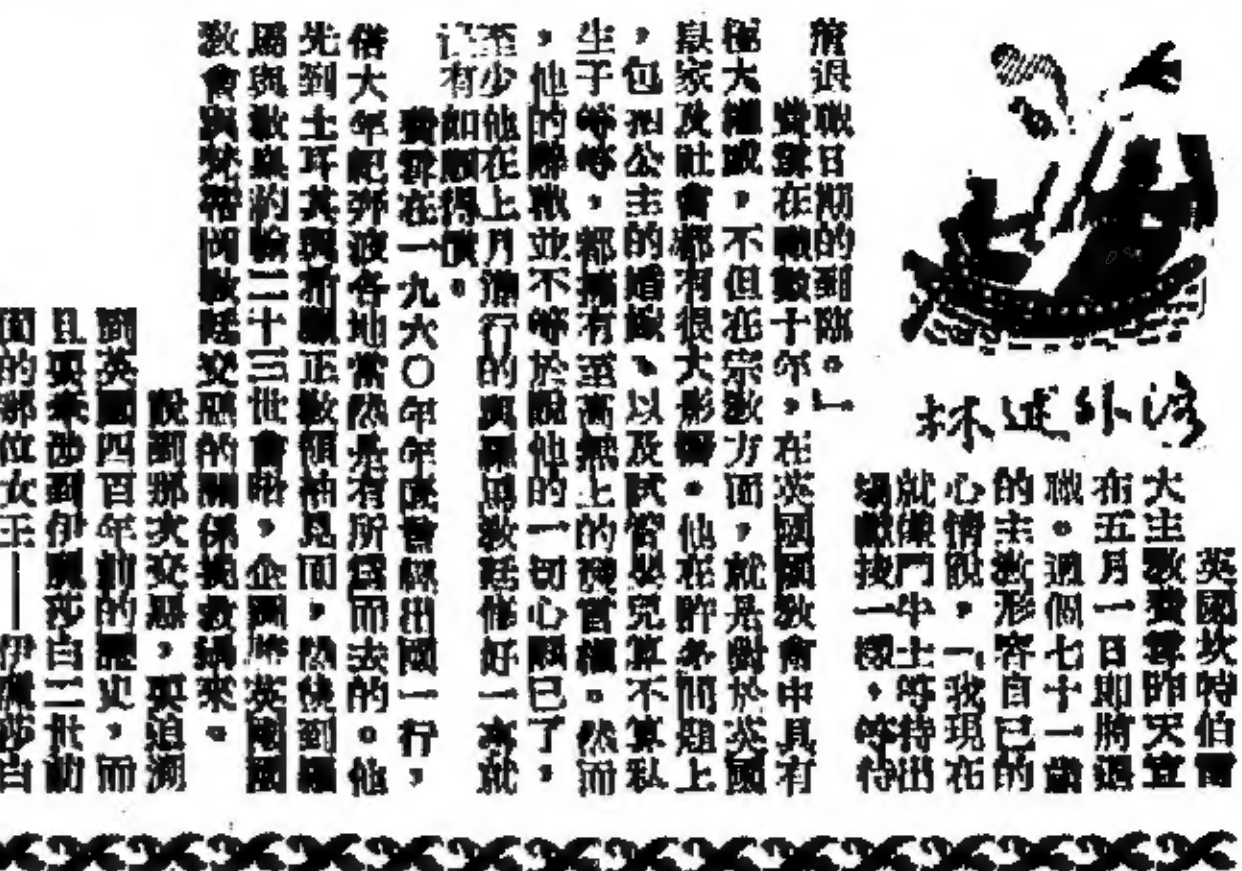 海外述林
英國坎特伯雷
大主教費雪昨天宣
布五月一日即將退
職。這個七十一歲
的主教形容自己的
心情說,「我現在
就像鬥牛士等待出
場獻技一樣,等待
着退職日期的到臨。」
費雪在職數十年,在英國國教會中具有
極大權威,不但在宗教方面,就是對於英國
皇家及社會都有很大影響。他在許多問題上
,包括公主的婚嫁、以及試管嬰兒算不算私
生子等等,都擁有至高無上的發言權。然而
,他的辭職並不等於說他的一切心願已了,
至少他在上月進行的與羅馬教廷修好一事就
沒有如願得償。
費雪在一九六〇年年底曾經出國一行,
偌大年紀奔波各地當然是有所爲而去的。他
先到土耳其與希臘正教領袖見面,然後到羅
馬與教皇約翰二十三世會晤,企圖將英國國
教會與梵蒂岡教廷交惡的關係挽救過來。
說到那次交惡,要追溯
到英國四百年前的歷史,而
且要牽涉到伊麗莎白二世前
面的那位女王——伊麗莎白